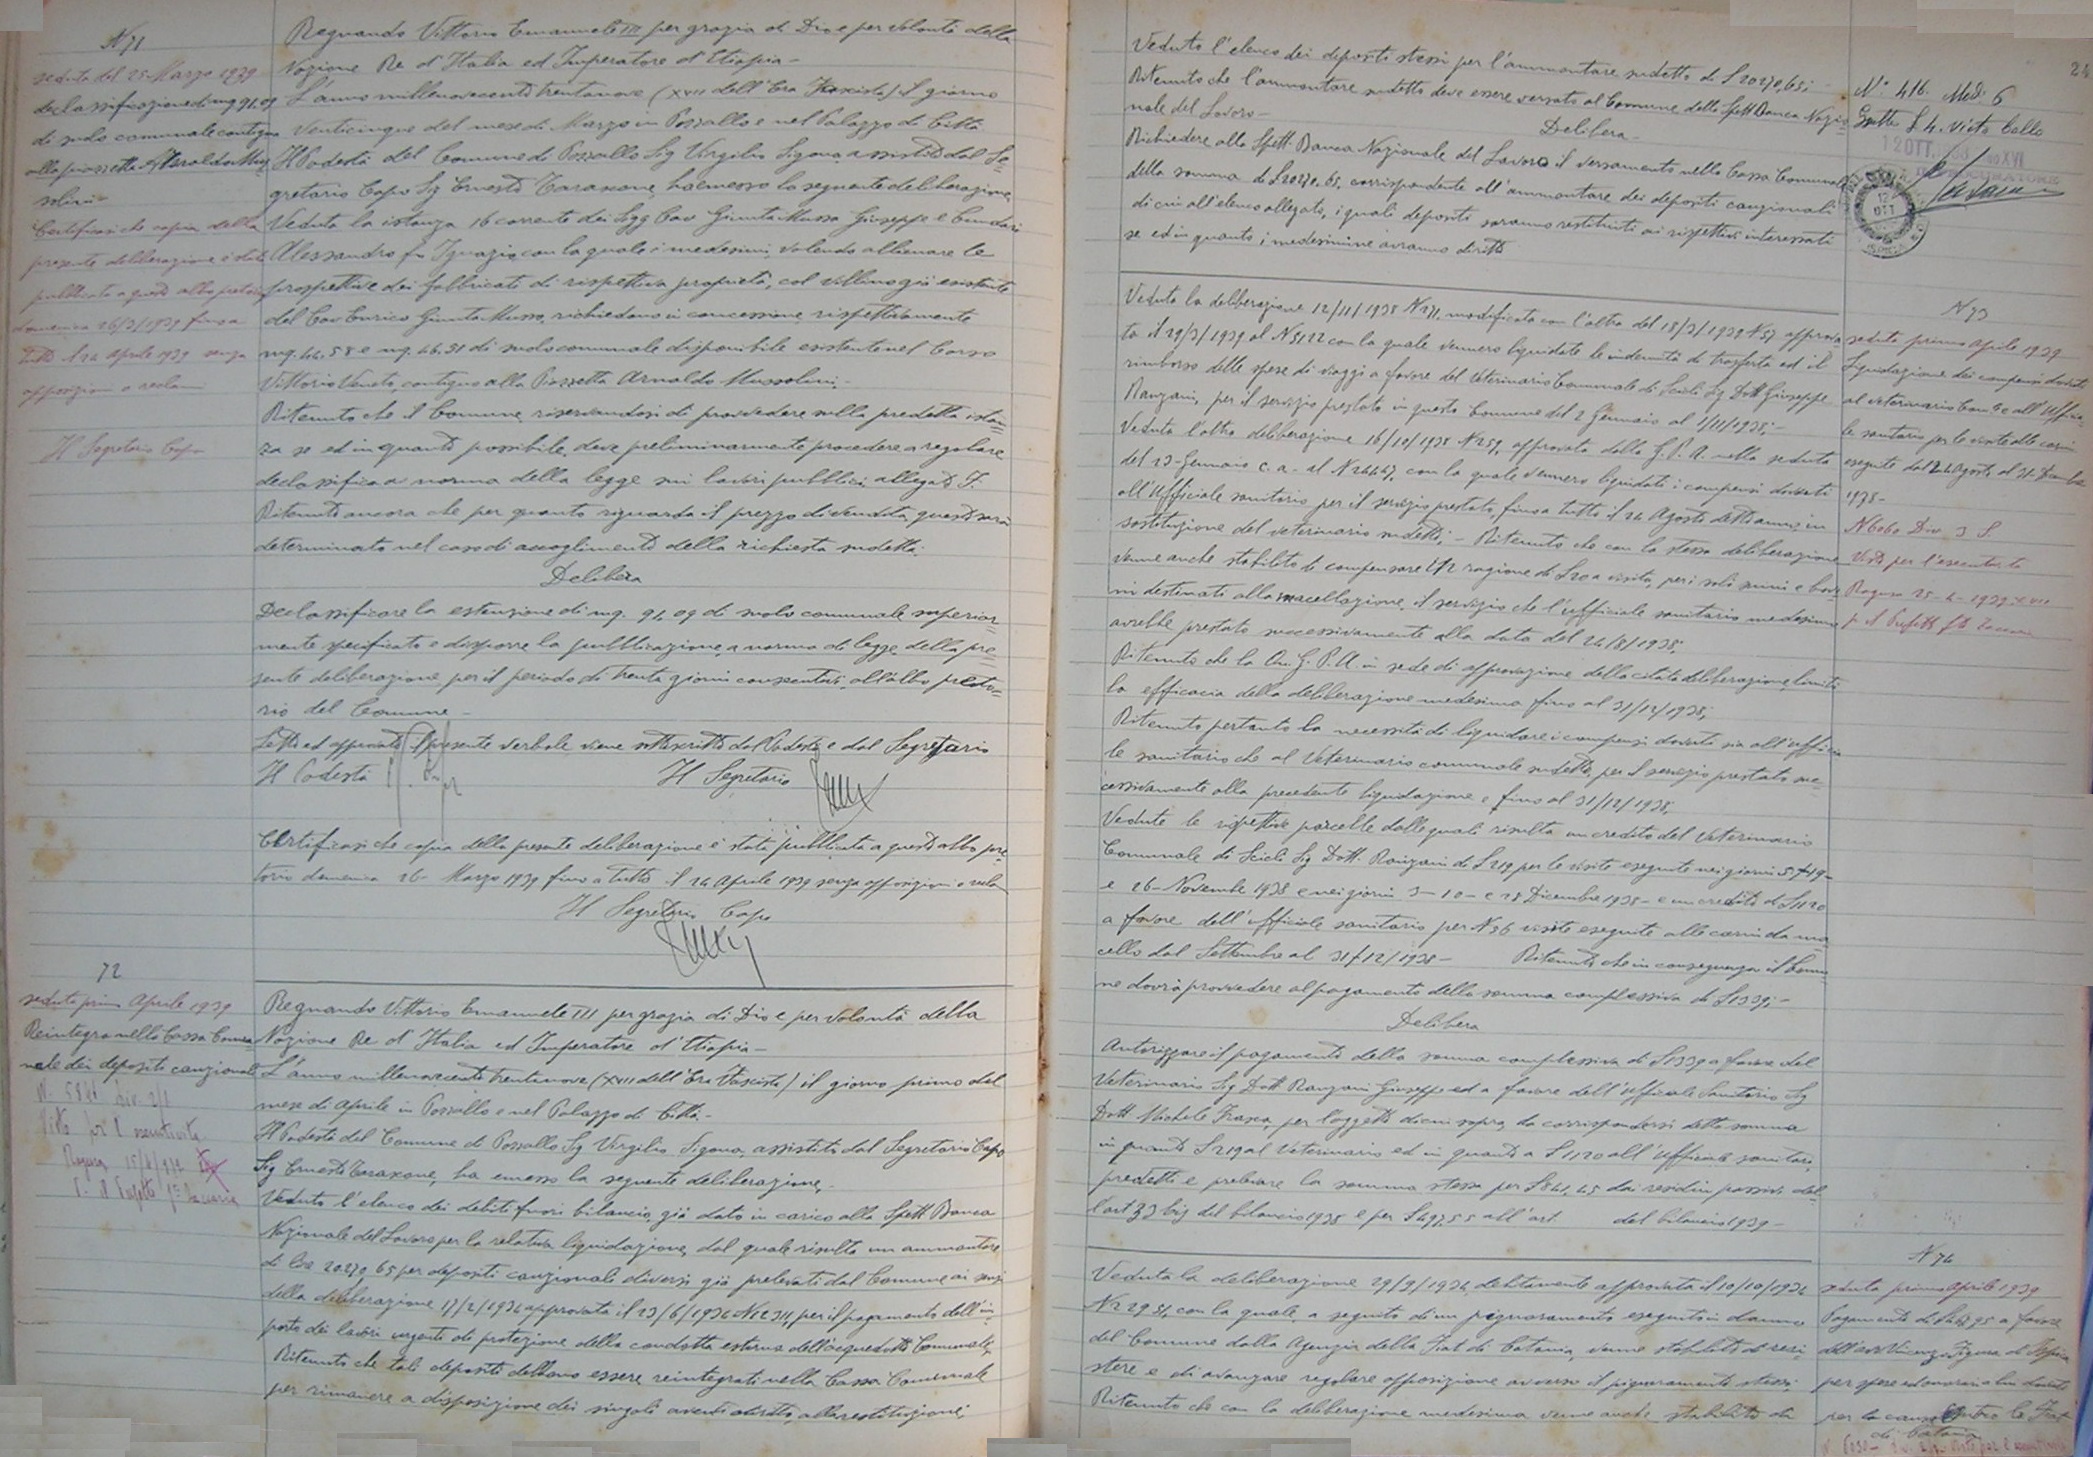 N 71
seduta del 25 Marzo 1939
declassificazione di mq 91,09
di suolo comunale contiguo
alla piazzetta Arnaldo Mus
solini
Certificasi che copia della
presente deliberazione è stata
pubblicata a questo albo pretorio
domenica 26/3/1939 fino a
tutto il 24 Aprile 1939 senza
opposizioni o reclami
Il Segretario Capo
Regnando Vittorio Emanuele III per grazia di Dio e per volontà della
Nazione Re d'Italia ed Imperatore d'Etiopia -
L'anno millenovecentotrentanove (XVII dell'Era Fascista) il giorno
venticinque del mese di Marzo in Pozzallo e nel Palazzo di Città
Il Podestà del Comune di Pozzallo Sig Virgilio Sigona assistito dal Se=
gretario Capo Sig Ernesto Tarascone, ha emesso la seguente deliberazione.
Veduta la istanza 16 corrente dei Sigg Cav Giunta Mussa Giuseppe e
Alessandro fu Ignazio con la quale i medesimi, volendo allineare le
prospettive dei fabbricati di rispettiva proprietà, col villino già esistente
del Cav Enrico Giunta Musso, richiedono in concessione rispettivamente
mq. 44,58 e mq. 46,51 di suolo comunale disponibile esistente nel Corso
Vittorio Veneto, contiguo alla Piazzetta Arnaldo Mussolini.-
Ritenuto che il Comune riservandosi di provvedere sulla predetta istan=
za se ed in quanto possibile, deve preliminarmente procedere a regolare
declassifica a norma della legge sui lavori pubblici allegato F.
Ritenuto ancora che per quanto riguarda il prezzo di vendita, questo sarà
determinato nel caso di accoglimento della richiesta sudetta.
Delibera
Declassificare la estenzione di mq. 91,09 di suolo comunale superior=
mente specificato e disporre la pubblicazione, a norma di legge, della pre=
sente deliberazione per il periodo di trenta giorni consecutivi, all'albo preto=
rio del Comune -
Letto ed approvato il presente verbale viene sottoscritto dal Podestà e dal Segretario
Il Podestà Il Segretario
Certificasi che copia della presente deliberazione è stata pubblicata a questo albo pre=
torio domenica 26 Marzo 1939 fino a tutto il 24 Aprile 1939 senza opposizioni o recla
Il Segretario Capo
72
seduta primo Aprile 1939
Reintegro nella Cassa Comu
nale dei depositi cauzionali
N. 5846 Div. 2/2
Visto per l'esecutività
Ragusa 15/4/939
p. Il Prefetto
Regnando Vittorio Emanuele III per grazia di Dio e per volontà della
Nazione Re d'Italia ed Imperatore d'Etiopia -
L'anno millenovecentotrentanove (XVII dell'Era Fascista) il giorno primo del
mese di Aprile in Pozzallo e nel Palazzo di Città.-
Il Podestà del Comune di Pozzallo Sig Virgilio Sigona, assistito dal Segretario Capo
Sig Ernesto Tarascone, ha emesso la seguente deliberazione.-
Veduto l'elenco dei debiti fuori bilancio, già dato in carico alla Spett Banca
Nazionale del Lavoro per la relativa liquidazione, dal quale risulta un ammontare
di lire 20270,65 per depositi cauzionali diversi già prelevati dal Comune ai sensi
della deliberazione 17/2/1936 approvata il 23/6/1936 per il pagamento dell'im
porto dei lavori urgenti di protezione della condotta esterna dell'acquedotto Comunale
Ritenuto che tali depositi debbano essere reintegrati nella Cassa Comunale
per rimanere a disposizione dei singoli aventi diritto, alla restituzione;
24
Veduto l'elenco dei depositi stessi per l'ammontare sudetto di £ 20270,65;
Ritenuto che l'ammontare sudetto deve essere versato al Comune dalla Spett Banca Nazio
nale del Lavoro -
Delibera -
Richiedere alla Spett. Banca Nazionale del Lavoro il versamento nella Cassa Comunale
della somma di £ 20270,65, corrispondente all'ammontare dei depositi cauzionali
di cui all'elenco allegato, i quali depositi saranno restituiti ai rispettivi interessati
se ed in quanto i medesimi ne avranno diritto
N° 416 Mod: 6
12 OTT. XVI
N 73
seduta primo Aprile 1939
Liquidazione dei compensi dovuti
al veterinario Com e all'Uffizia
le sanitario per le visite alle carni
eseguite dal 24 Agosto al 31 Dicembre
1938 -
N 6060 Div 3 S.
Visto per l'esecutività
Ragusa 25-4-1939 XVII
p Il Prefetto
Veduta la deliberazione 12/11/1938 N 271, modificata con l'altra del 18/3/1939 N 57 approva
ta il 29/3/1939 al N 5122 con la quale vennero liquidate le indennità di trasferta ed il
rimborso delle spese di viaggi a favore del Veterinario Comunale di Scicli Sig Dott Giuseppe
Ranzani, per il servizio prestato in questo Comune dal 2 Gennaio al 1/11/1938;-
Veduta l'altra deliberazione 16/10/1938 N 259, approvata dalla G.P.A. nella seduta
del 23 Gennaio c.a. al N 24447, con la quale vennero liquidati i compensi dovuti
all'Ufficiale sanitario per il servizio prestato, fino a tutto il 24 Agosto detto anno, in
sostituzione del veterinario sudetto;- Ritenuto che con la stessa deliberazione
venne anche stabilito di compensare in ragione di £ 20 a visita, per i soli suini e bovi
ni destinati alla macellazione, il servizio che l'ufficiale sanitario medesimo
avrebbe prestato successivamente alla data del 24/8/1938;
Ritenuto che la On. G.P.A. in sede di approvazione della citata deliberazione, limitò
la efficacia della deliberazione medesima fino al 31/12/1938;
Ritenuto pertanto la necessità di liquidare i compensi dovuti sia all'uffizia
le sanitario che al Veterinario comunale sudetto, per il servizio prestato suc=
cessivamente alla precedente liquidazione e fino al 31/12/1938;
Vedute le rispettive parcelle dalle quali risulta un credito del Veterinario
Comunale di Scicli Sig Dott. Ranzani di £ 219 per le visite eseguite nei giorni 5, 19 -
e 26 - Novembre 1938 e nei giorni 3 - 10 - e 28 Dicembre 1938 - e un credito di £ 1120
a favore dell'ufficiale sanitario per N 56 visite eseguite alle carni da ma
cello dal Settembre al 31/12/1938 - Ritenuto che in conseguenza il Comu
ne dovrà provvedere al pagamento della somma complessiva di £ 1339;-
Delibera
Autorizzare il pagamento della somma complessiva di £ 1339 a favore del
Veterinario Sig Dott Ranzani Giuseppe ed a favore dell'Ufficiale Sanitario Sig
Dott Michele Frasca, per l'oggetto di cui sopra, da corrispondersi detta somma
in quanto £ 219 al Veterinario ed in quanto a £ 1120 all'Ufficiale sanitario
predetti e prelevare la somma stessa per £ 841,45 dai residui passivi del=
l'art 33 bis del bilancio 1938 e per £ 497,55 all'art. del bilancio 1939 -
N 74
seduta primo Aprile 1939
Pagamento di £ a favore
dell'avv Vincenzo di Ispica
per spese ed onorari a lui dovuti
per la causa contro la Fiat
di Catania
Veduta la deliberazione 29/9/1934, debitamente approvata il 10/10/1934
N 22951, con la quale, a seguito di un pignoramento eseguito in danno
del Comune dalla Agenzia della Fiat di Catania, venne stabilito di resi=
stere e di avanzare regolare opposizione avverso il pignoramento stesso;
Ritenuto che con la deliberazione medesima venne anche stabilito di